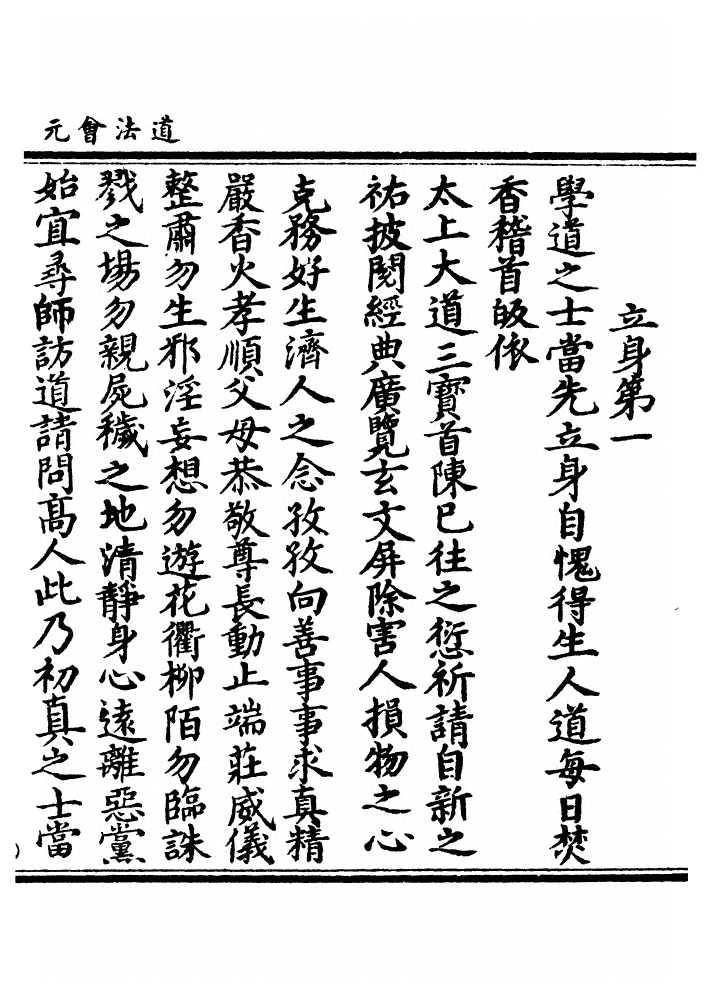 道法會元
立身第一
學道之士當先立身自愧得生人道每日焚
香稽首皈依
太上大道三寶首陳已往之愆祈請自新之
祐披閱經典廣覽玄文屏除害人損物之心
克務好生濟人之念孜孜向善事事求真精
嚴香火孝順父母恭敬尊長動止端莊威儀
整肅勿生邪淫妄想勿遊花衢柳陌勿臨誅
戮之場勿親屍穢之地清靜身心遠離惡黨
始宜尋師訪道請問高人此乃初真之士當